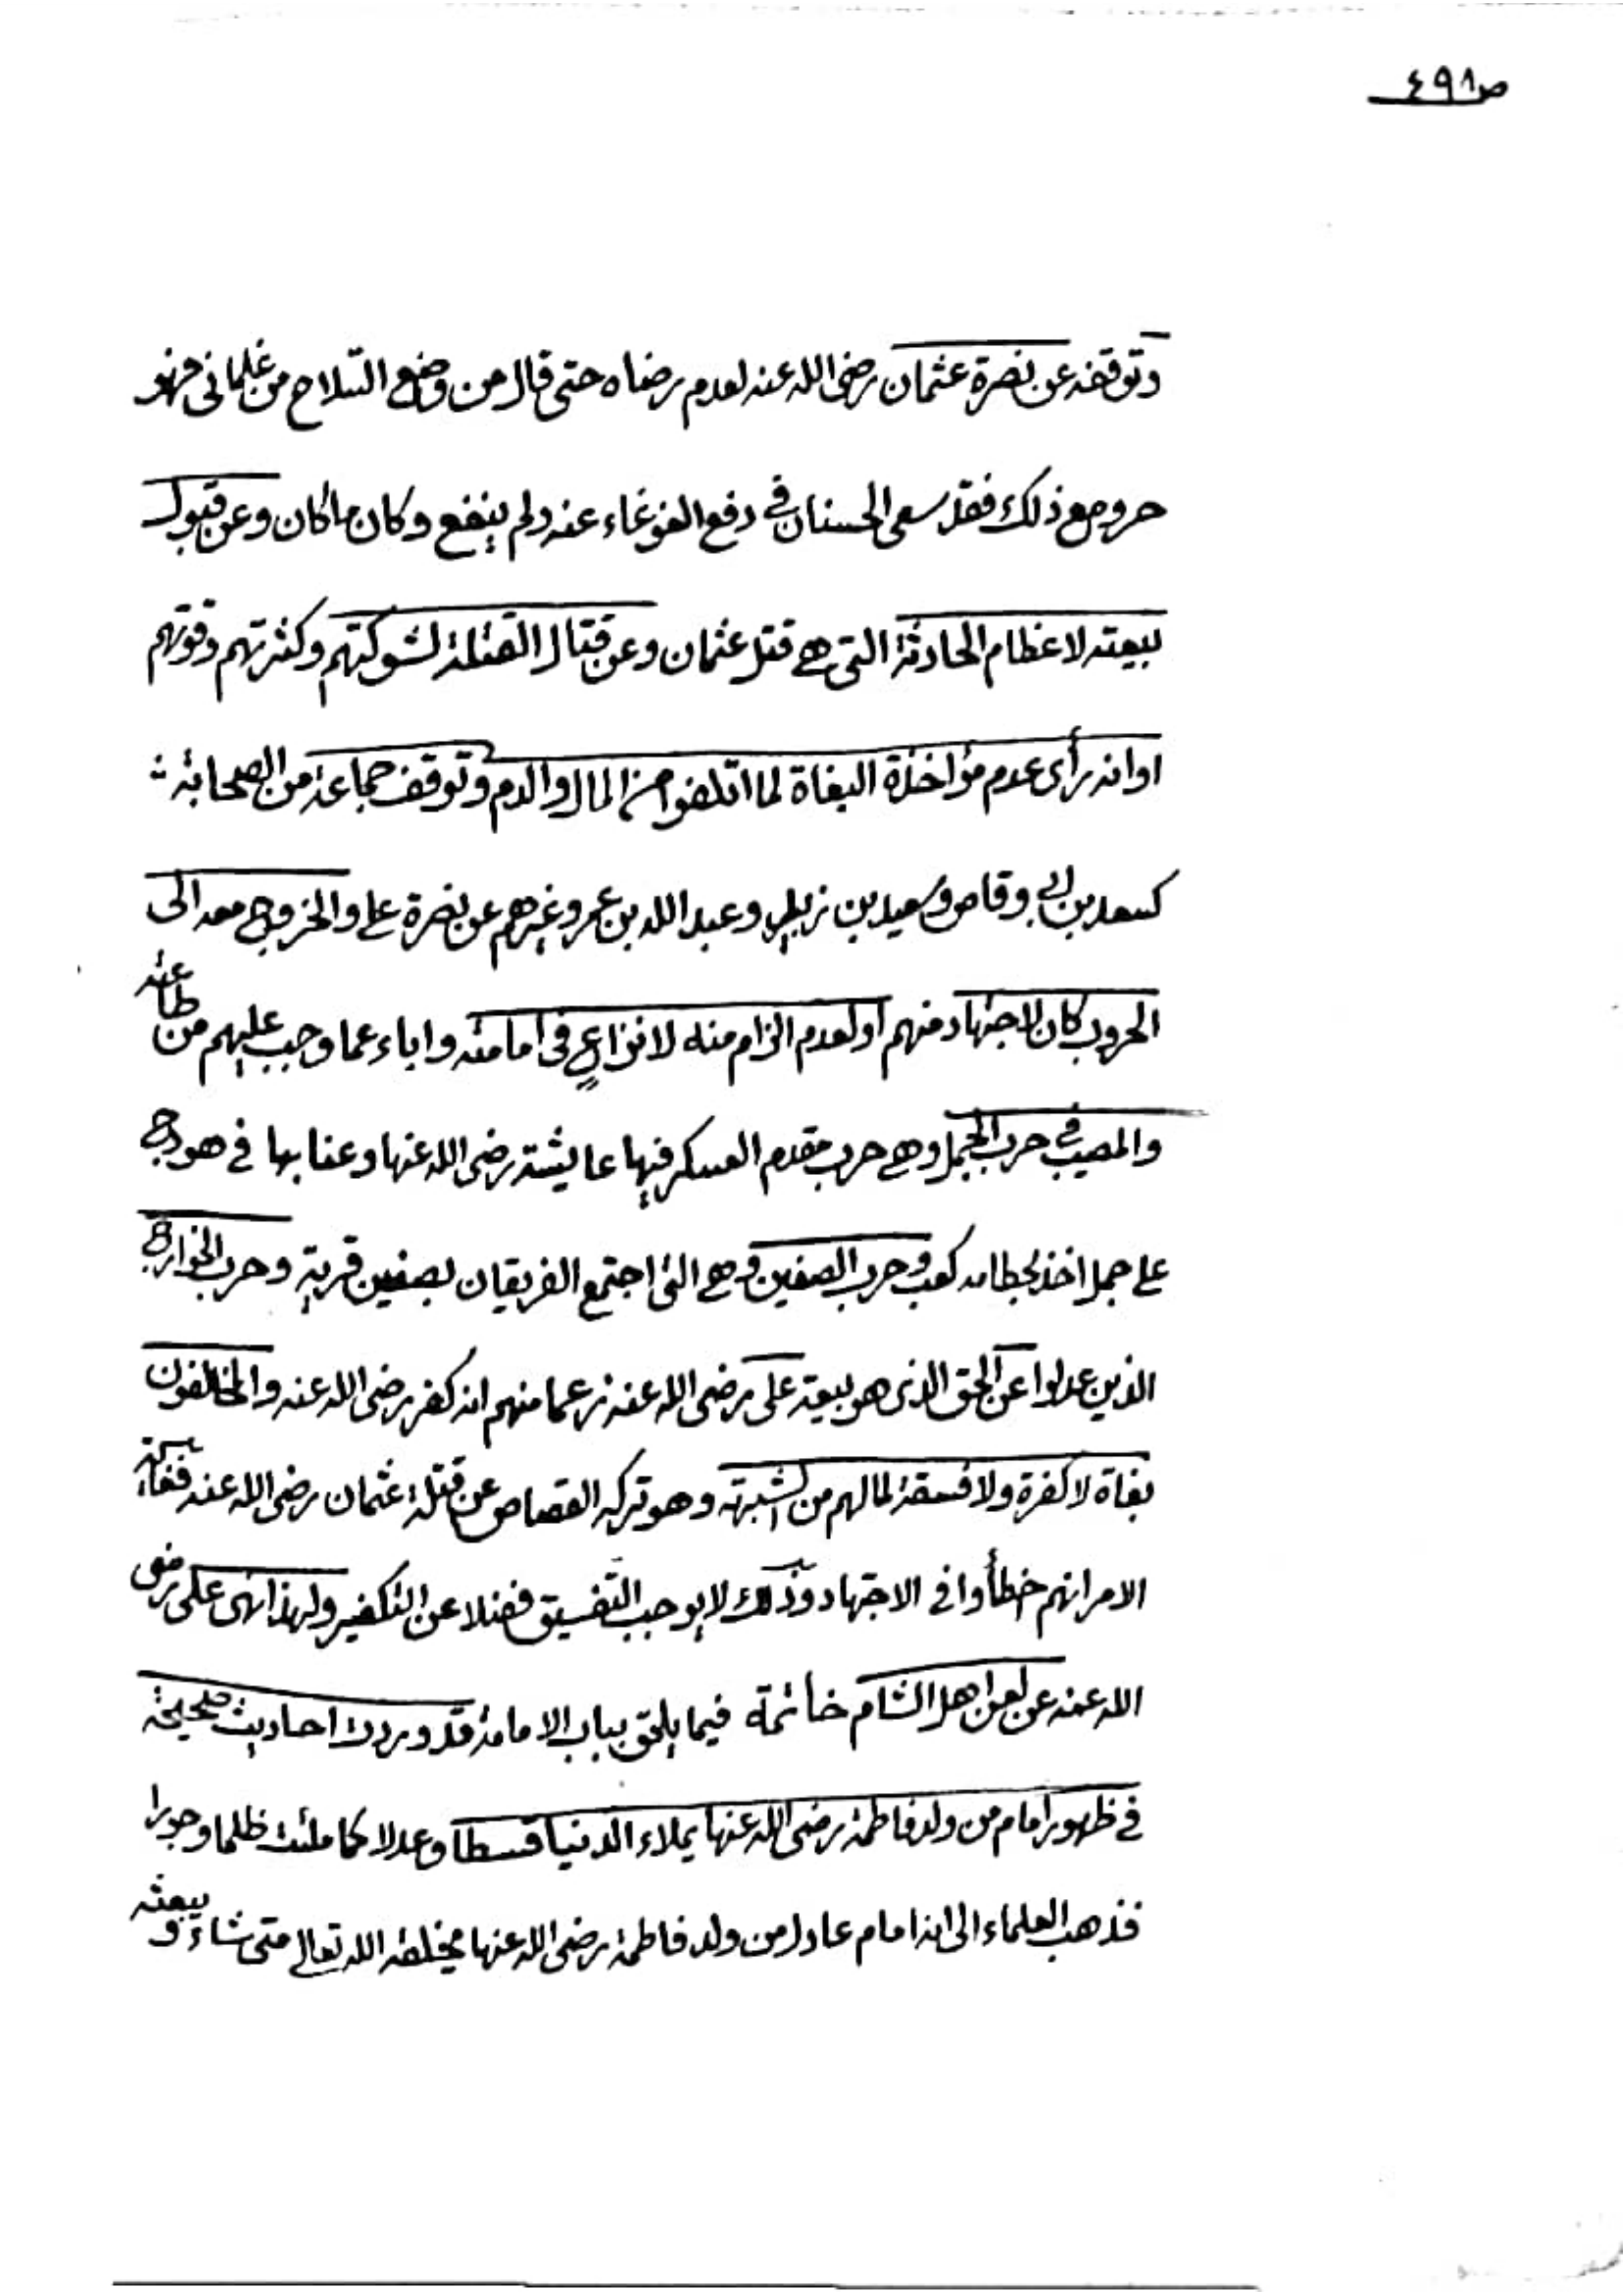 ص٤٩٨
وتوقفه عن نصرة عثمان رضى الله عنه لعدم رضاه حتى قال من وضع السلاح من غلمانى فهو
حر ومع ذلك فقد سعى الحسنان في دفع الغوغاء عنه ولم ينفع وكان ما كان وعن قبول
بيعته لاعظام الحادثة التى هى قتل عثمان وعن قتال القتلة لشوكتهم وكثرتهم وقوتهم
او انه رأى عدم مؤاخذة البغاة لما اتلفوا من المال والدم وتوقف جماعة من الصحابة
كسعد بن ابي وقاص وسعيد بن زيد وعبد الله بن عمر وغيرهم عن نصرة على والخروج معه الى
الحروب كان لاجتهاد منهم او لعدم الزام منه لا نزاع في امامته واباء عما وجب عليهم من طاعته
والمصيب في حرب الجمل وهى حرب مقدم العسكر فيها عايشة رضى الله عنها وعنا بها في هودج
على جمل اخذ بخطامه كعب وحرب الصفين وهى التى اجتمع الفريقان بصفين قرية وحرب الخوارج
الذين عدلوا عن الحق الذى هو بيعة على رضى الله عنه زعما منهم انه كفر رضى الله عنه والمخالفون
بغاة لا كفرة ولا فسقة لما لهم من الشبهة وهو تركه القصاص عن قتلة عثمان رضى الله عنه فغاية
الامر انهم خطأوا فى الاجتهاد وذلك لا يوجب التفسيق فضلا عن التكفير ولهذا نهى على رضى
الله عنه عن لعن اهل الشام خاتمة فيما يلحق بباب الامامة قد وردت احاديث صحيحة
في ظهور امام من ولد فاطمة رضى الله عنها يملاء الدنيا قسطا وعدلا كما ملئت ظلما وجورا
فذهب العلماء الى انه امام عادل من ولد فاطمة رضى الله عنها يخلقه الله تعالى متى شاء ويبعثه